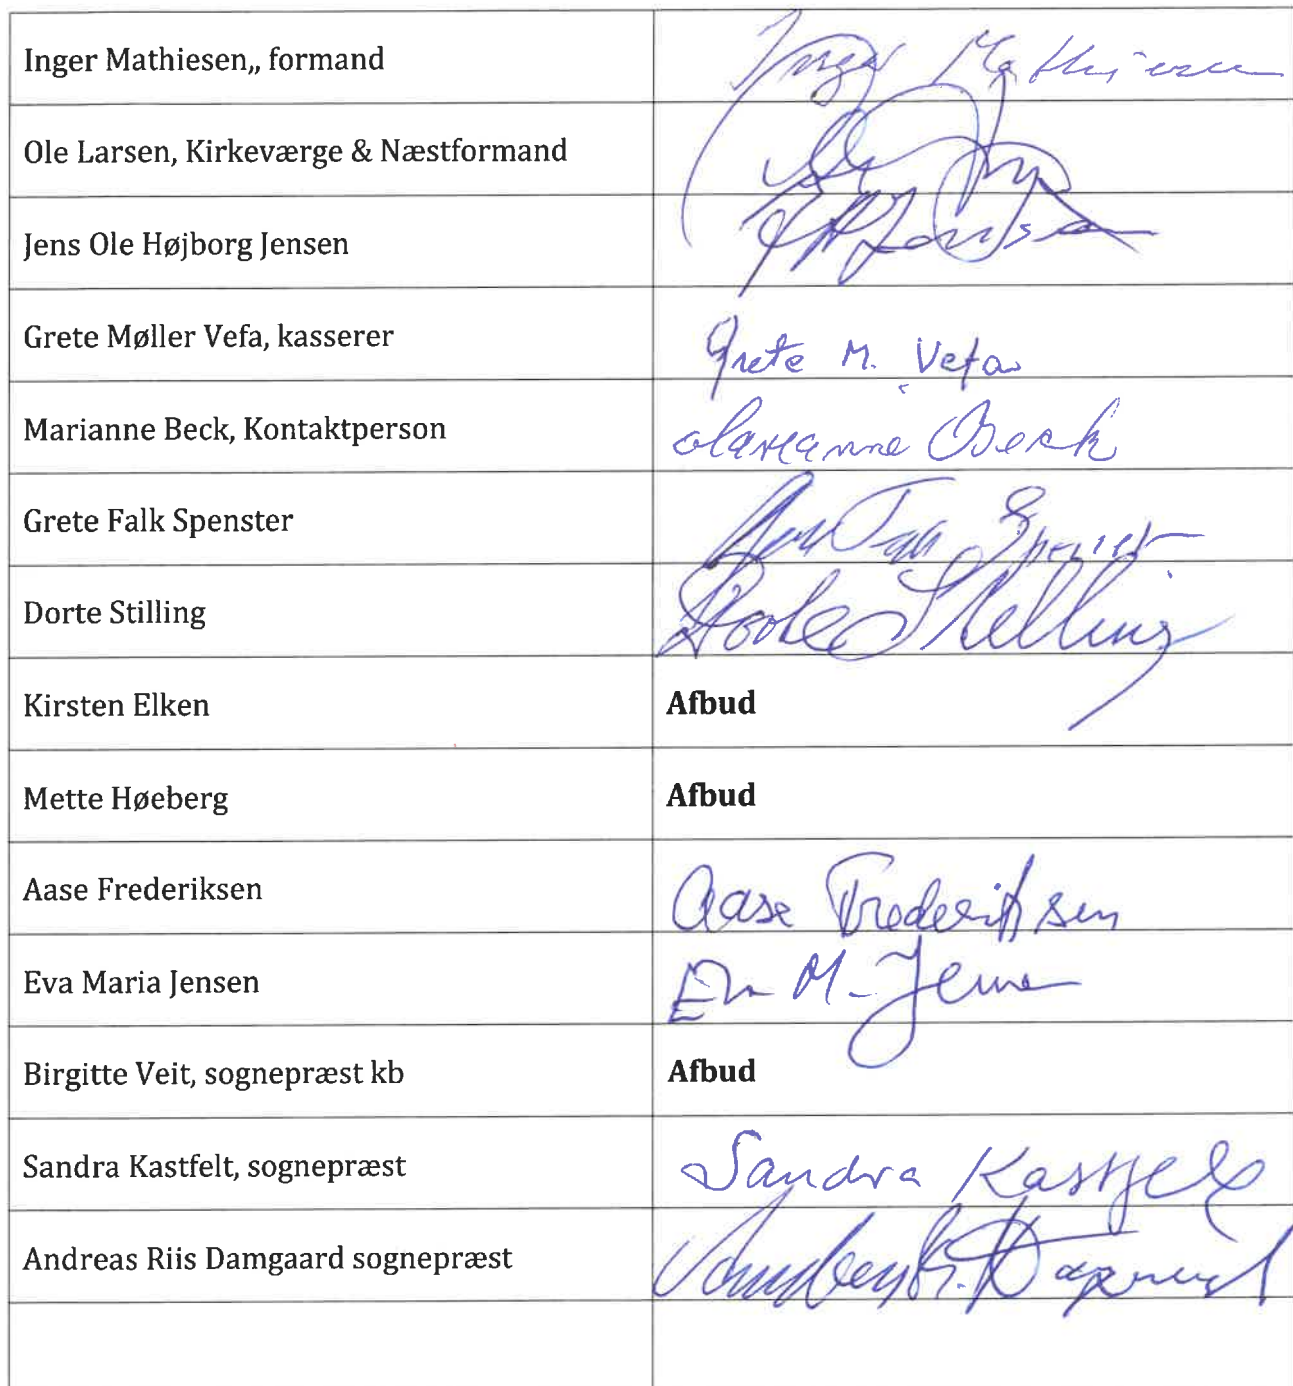 Inger Mathiesen,, formand Inger Mathiesen
Ole Larsen, Kirkeværge & Næstformand
Jens Ole Højborg Jensen
Grete Møller Vefa, kasserer Grete M. Vefa
Marianne Beck, Kontaktperson Marianne Beck
Grete Falk Spenster
Dorte Stilling Dorte Stilling
Kirsten Elken Afbud
Mette Høeberg Afbud
Aase Frederiksen Aase Frederiksen
Eva Maria Jensen Eva M. Jensen
Birgitte Veit, sognepræst kb Afbud
Sandra Kastfelt, sognepræst Sandra Kastfelt
Andreas Riis Damgaard sognepræst